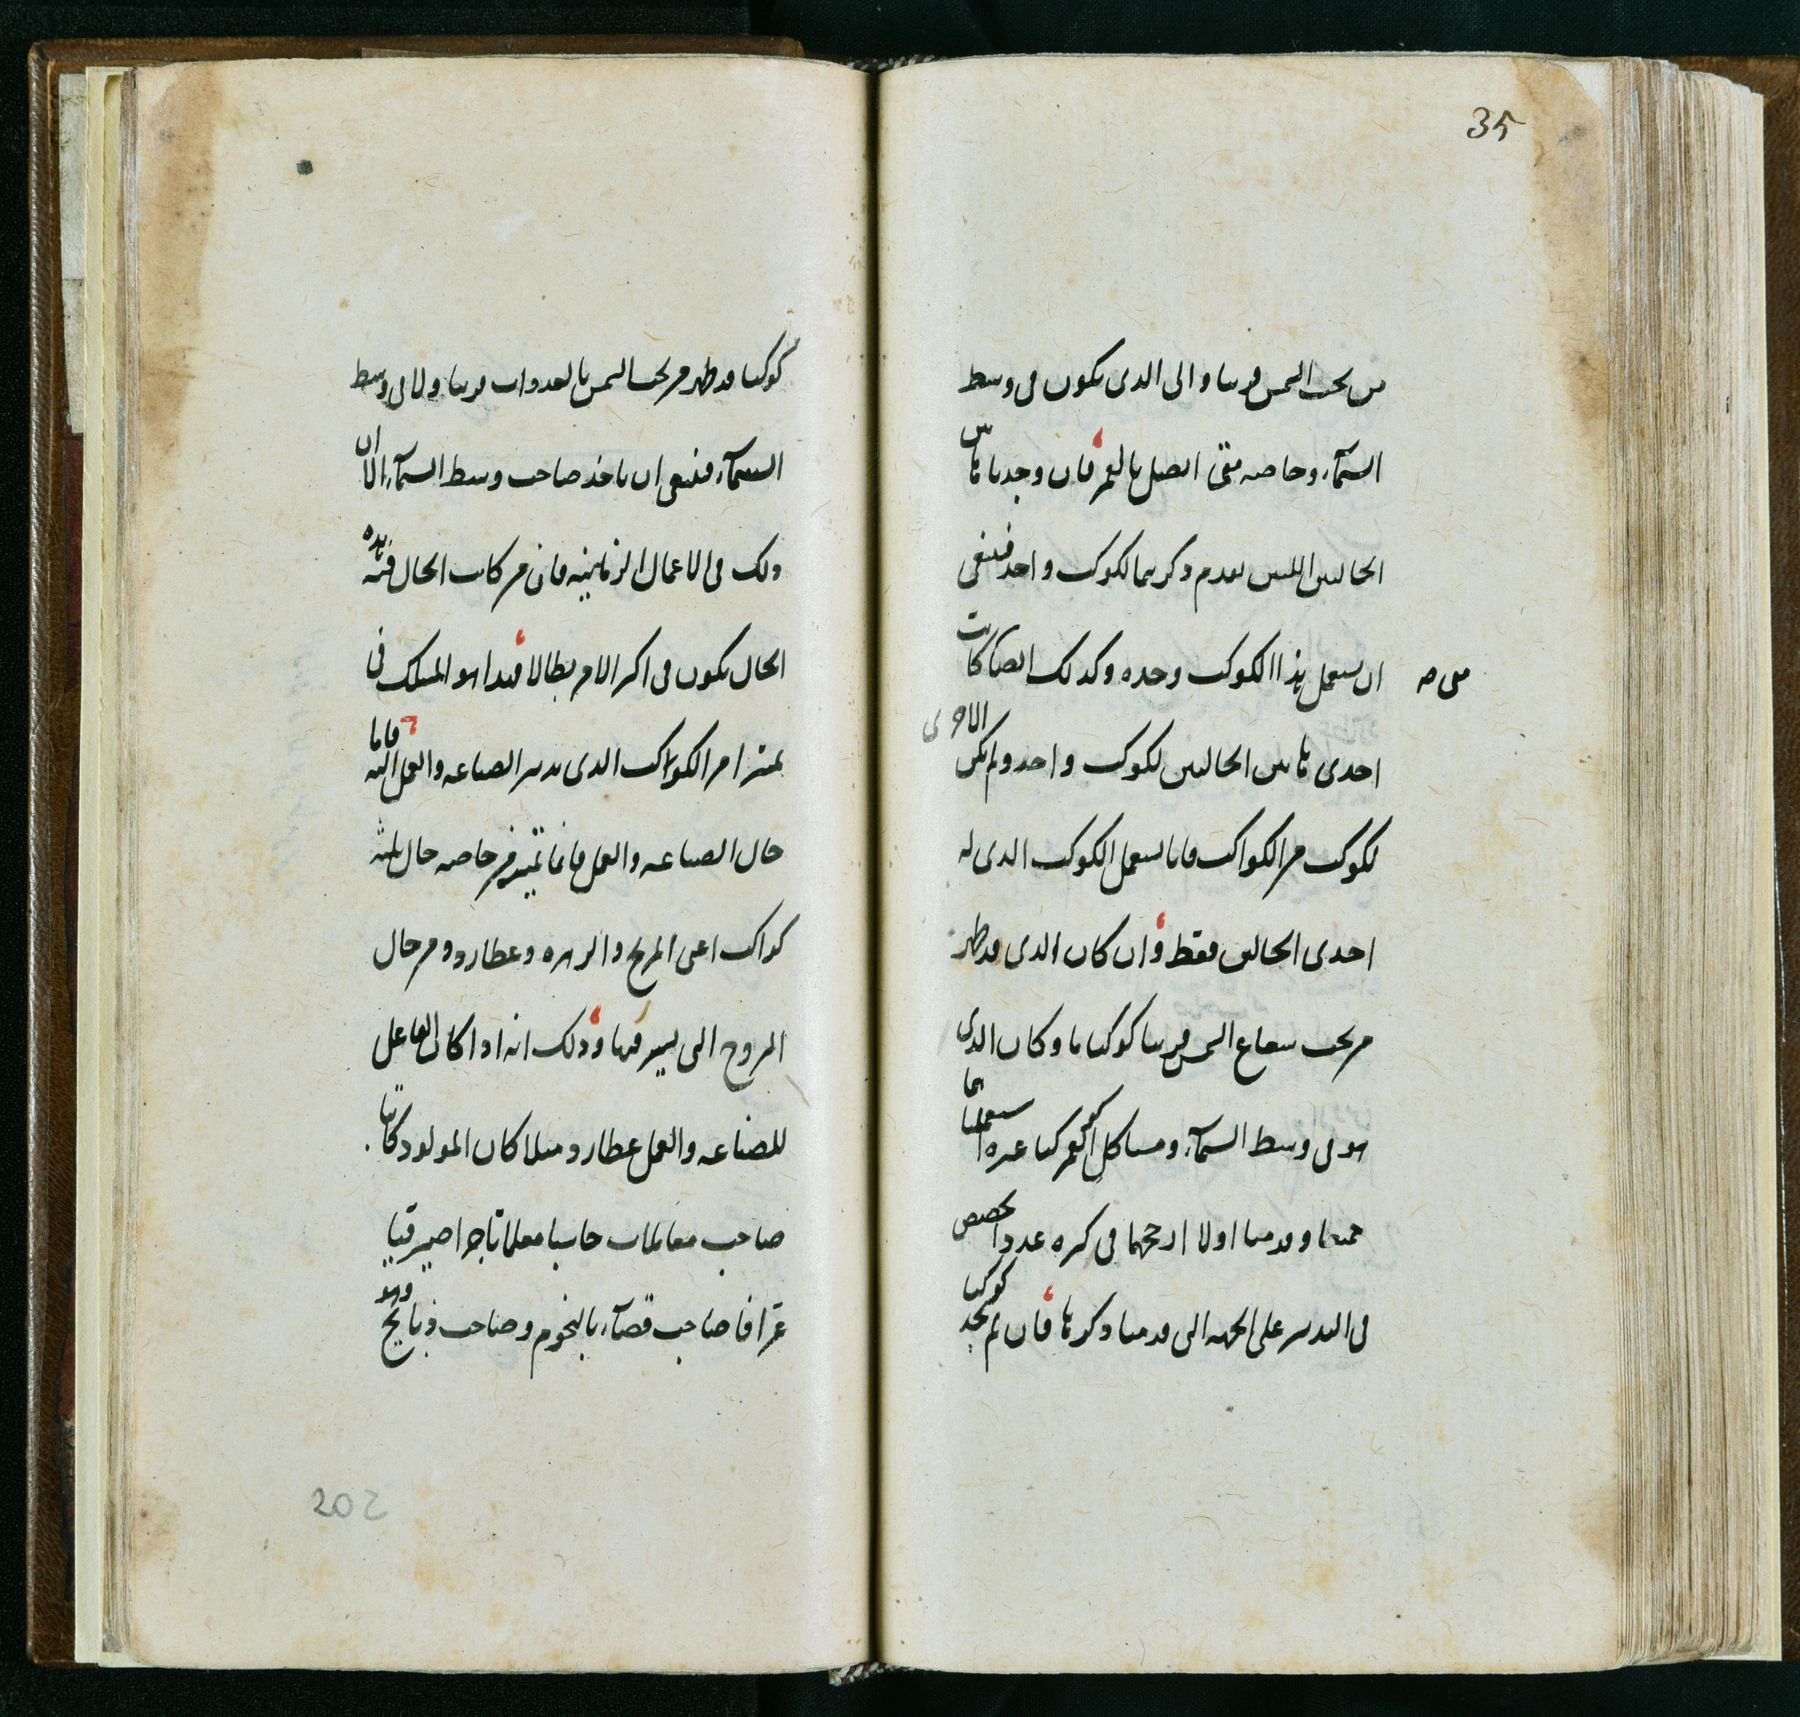 35
من تحت الشمس قريبا والى الذى يكون فى وسط
السمآء وخاصة متى اتصل بالقمر فان وجدنا هاتين
الحالتين اللتين تقدم ذكرهما لكوكب واحد فينبغى
ان نستعمل هذا الكوكب وحده وكذلك ايضا ان كانت
احدى هاتين الحالتين لكوكب واحد ولم تكن الاخرى
لكوكب من الكواكب فانا نستعمل الكوكب الذى له
احدى الحالتين فقط وان كان الذى قد ظهر
من تحت شعاع الشمس قريبا كوكبا ما وكان الذى
هو فى وسط السمآء ومشاكل القمر كوكبا غيره استعملناهما
جميعا وقدمنا اولا ارجحهما فى كثرة عدد الحصص
فى التدبير على الجهة التى قدمنا ذكرها فان لم نجد كوكبا
كوكبا قد ظهر من تحت الشمس بالغدوات قريبا ولا فى وسط
السمآء فينبغى ان ناخذ صاحب وسط السمآء الا ان
ذلك فى الاعمال الزمانية فان من كانت الحال فيه هذه
الحال يكون فى اكثر الامر بطالا فهذا هو المسلك فى
تمييزنا من الكواكب الذى يدبر الصناعة والعمل فاما
حال الصناعة والعمل فانما تميز من خاصة حال الثلثة
كواكب اعنى المريخ والزهرة وعطارد ومن حال
البروج التى يسير فيها وذلك انه اذا كان الفاعل
للصناعة والعمل عطارد مثلا كان المولود كاتبا
صاحب معاملات حاسبا معلما تاجرا صيرفيا
عرافا صاحب قضآء بالنجوم وصاحب ذبائح وهو
202